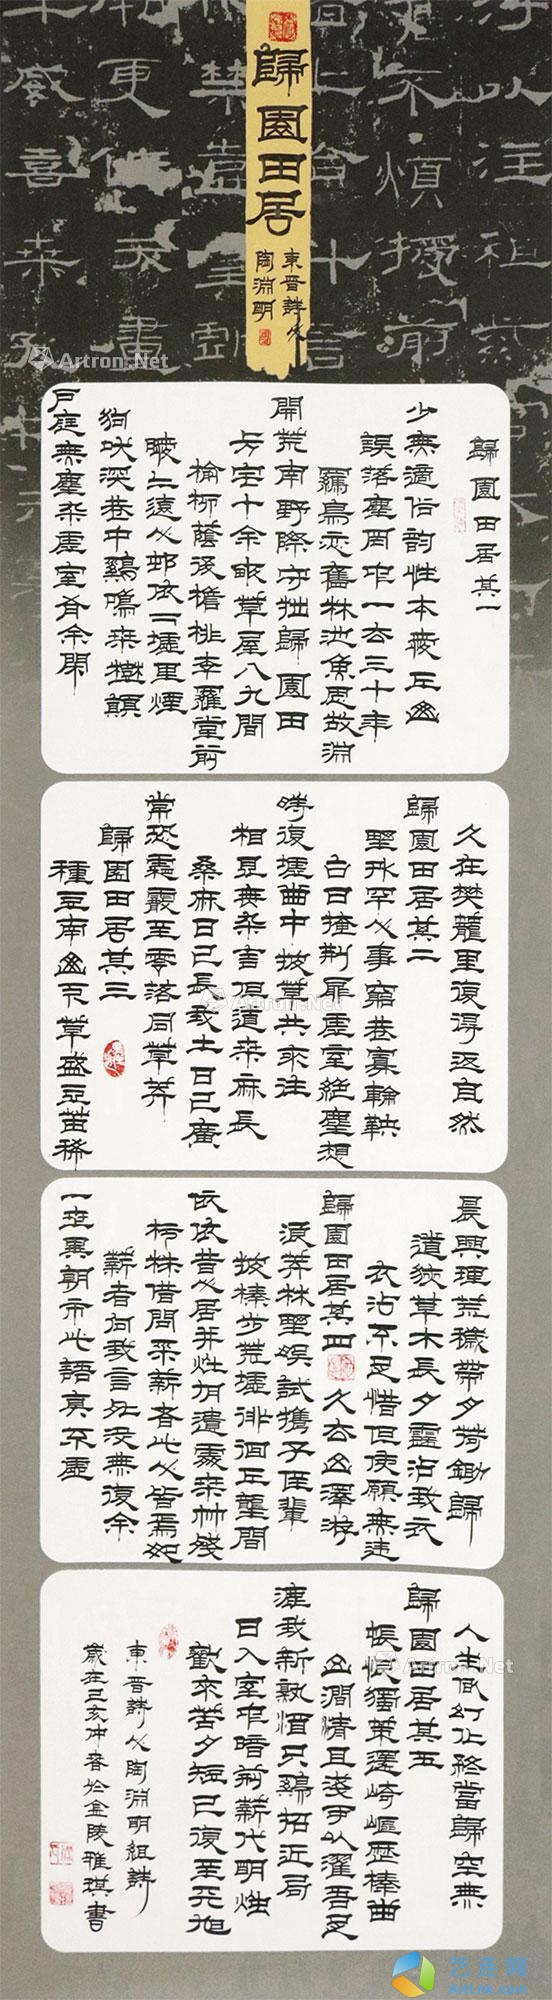 歸園田居
東晉詩人
陶淵明
歸園田居其一
少無適俗韵性本愛丘山
誤落塵网中一去三十年
羈鳥恋舊林池魚思故淵
開荒南野際守拙歸園田
方宅十余畝草屋八九間
榆柳蔭後檐桃李羅堂前
曖二遠人邨依二墟里煙
狗吠深巷中鷄鳴桑樹顛
戶庭無塵杂虛室有余閑
久在樊籠里復得返自然
歸園田居其二
野外罕人事窮巷寡輪鞅
白日掩荆扉虛室絕塵想
時復墟曲中披草共來往
相見無杂言但道桑麻長
桑麻日已長我土日已廣
常恐霜霰至零落同草莽
歸園田居其三
種豆南山下草盛豆苗稀
晨興理荒穢帶月荷鋤歸
道狹草木長夕露沾我衣
衣沾不足惜但使願無違
歸園田居其四 久去山澤游
浪莽林野娱試攜子侄輩
披榛步荒墟徘徊丘壟間
依依昔人居井灶有遺處桑竹殘
朽株借問采薪者此人皆焉如
薪者向我言死没無復余
一世異朝市此語真不虛
人生似幻化終當歸空無
歸園田居其五
悵恨獨策還崎嶇歷榛曲
山澗清且淺可以濯吾足
漉我新熟酒只鷄招近局
日入室中暗荆薪代明燭
歡來苦夕短已復至天旭
東晉詩人陶淵明組詩
歲在己亥仲春於金陵雅琪書
Artron.Net
Artron.Net
Artron.Net